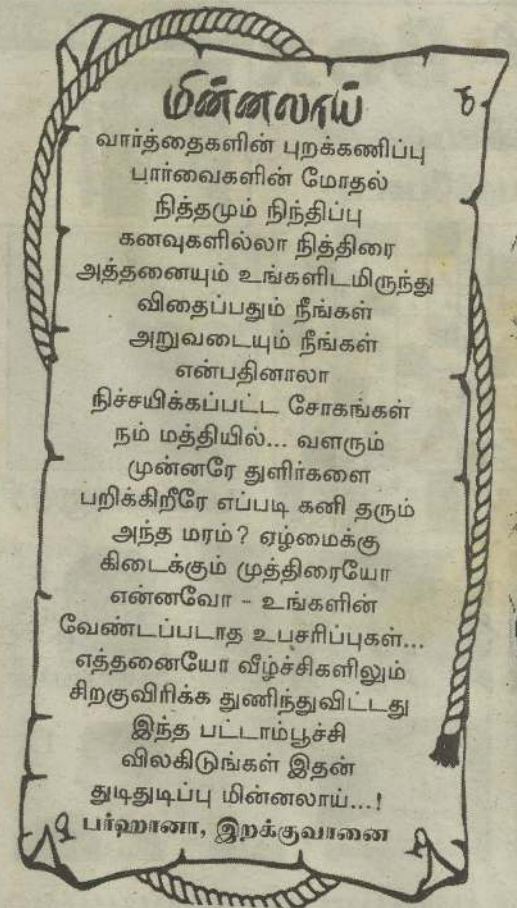 மின்னலாய்
வார்த்தைகளின் புறக்கணிப்பு
பார்வைகளின் மோதல்
நித்தமும் நிந்திப்பு
கனவுகளில்லா நித்திரை
அத்தனையும் உங்களிடமிருந்து
விதைப்பதும் நீங்கள்
அறுவடையும் நீங்கள்
என்பதினாலா
நிச்சயிக்கப்பட்ட சோகங்கள்
நம் மத்தியில்... வளரும்
முன்னரே துளிர்களை
பறிக்கிறீரே எப்படி கனி தரும்
அந்த மரம்? ஏழ்மைக்கு
கிடைக்கும் முத்திரையோ
என்னவோ - உங்களின்
வேண்டப்படாத உபசரிப்புகள்...
எத்தனையோ வீழ்ச்சிகளிலும்
சிறகுவிரிக்க துணிந்துவிட்டது
இந்த பட்டாம்பூச்சி
விலகிடுங்கள் இதன்
துடிதுடிப்பு மின்னலாய்...!
பர்ஹானா, இறக்குவானை